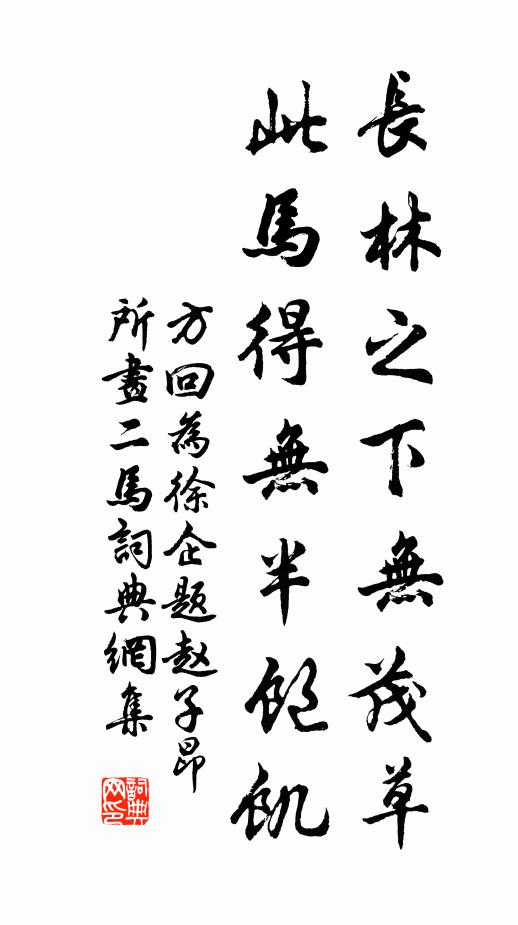 長林之下無茂草
此馬得無半飽飢
方回為徐企題趙子昂
所畫二馬詞典網集
詞典
网印